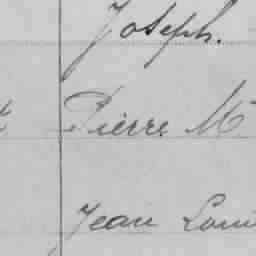 Joseph.
Pierre M
Jean Loui